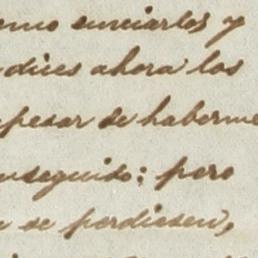 como enviarlos y
dices ahora los
pesar de haberme
nseguido; pero
se perdiesen,